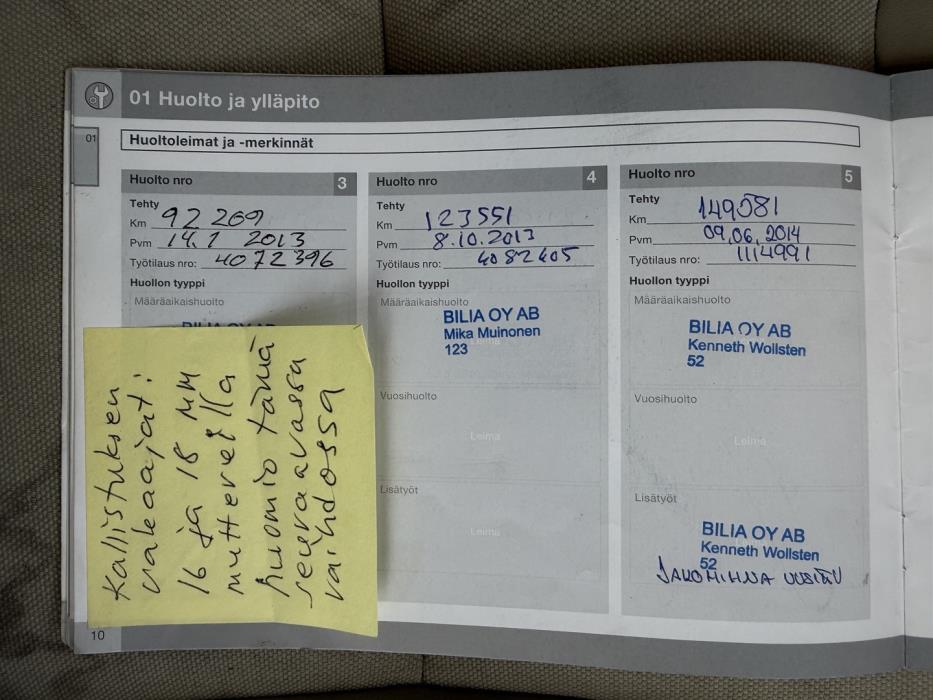 01 Huolto ja ylläpito
01
Huoltoleimat ja -merkinnät
Huolto nro 3
Tehty
Km 92 269
Pvm 14.1 2013
Työtilaus nro: 4072396
Huollon tyyppi
Määräaikaishuolto
BILIA OY AB
Huolto nro 4
Tehty
Km 123551
Pvm 8.10.2013
Työtilaus nro: 4082405
Huollon tyyppi
Määräaikaishuolto
BILIA OY AB
Mika Muinonen
123
Vuosihuolto
Leima
Lisätyöt
Leima
Huolto nro 5
Tehty
Km 149081
Pvm 09.06.2014
Työtilaus nro: 1114991
Huollon tyyppi
Määräaikaishuolto
BILIA OY AB
Kenneth Wollsten
52
Vuosihuolto
Leima
Lisätyöt
BILIA OY AB
Kenneth Wollsten
52
JAKOHIHNA UUSITTU
Kallistuksen
vakaajat:
16 ja 18 MM
muttereilla
huomio tämä
seuraavassa
vaihdossa
10